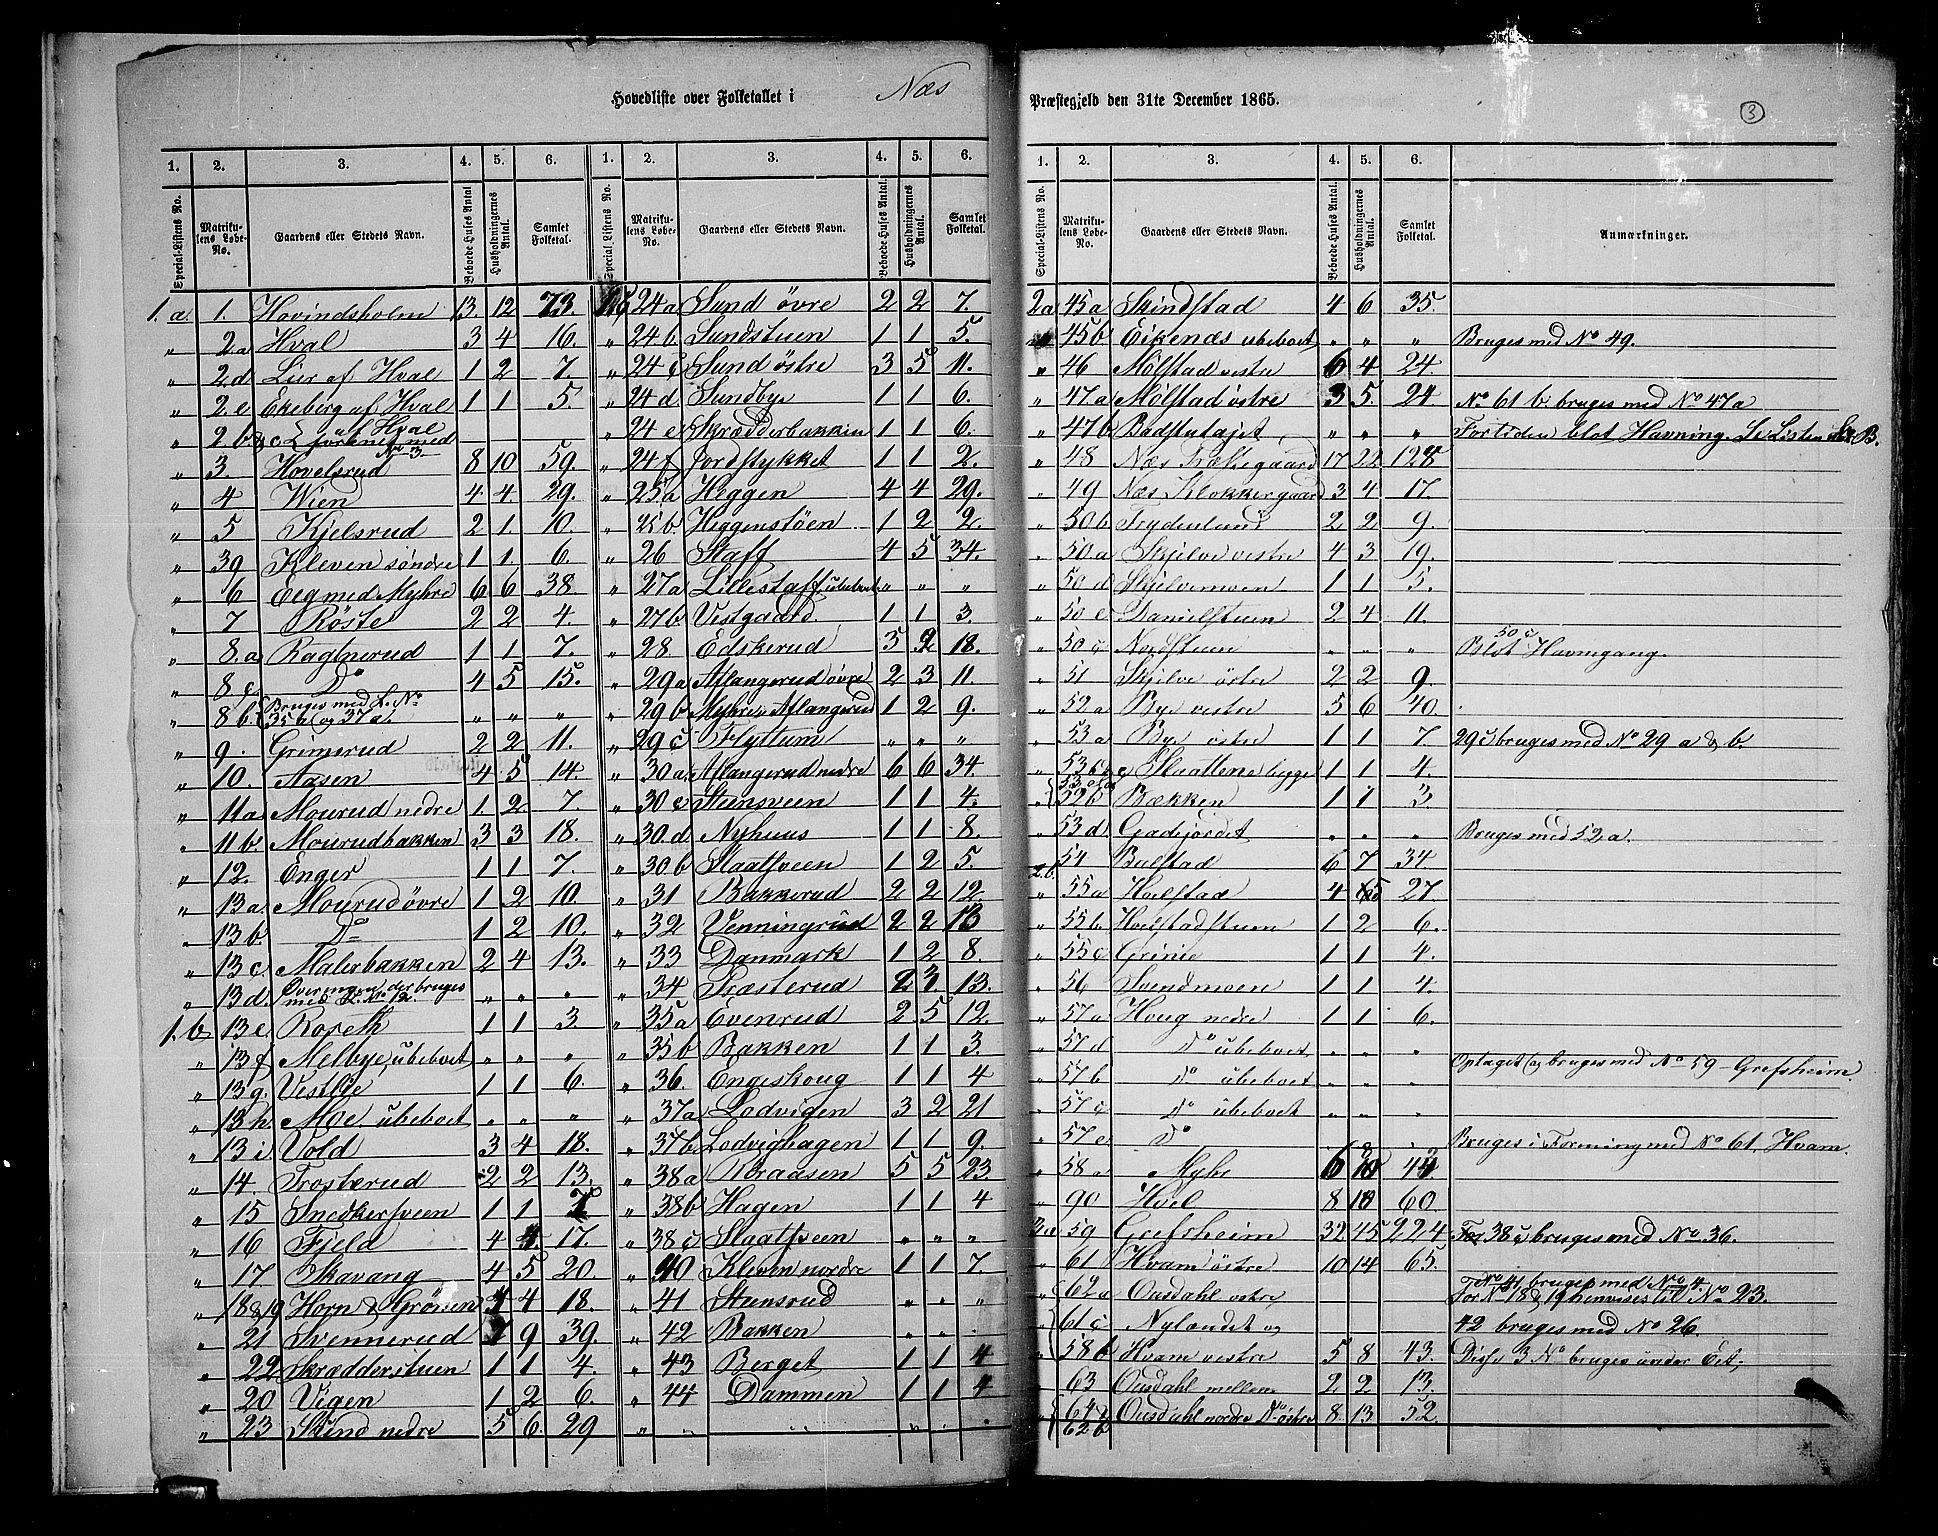 Hovedliste over Folketallet i Næs Præstegjeld den 31te December 1865.
3
1. 2. 3. 4. 5. 6. 1. 2. 3. 4. 5. 6.
Special-Listens No. Matrikulens Løbe-No. Gaardens eller Stedets Navn. Beboede Huses Antal Husholdningernes Antal. Samlet Folketal. Special Listens No. Matrikulens Løbe-No. Gaardens eller Stedets Navn. Beboede Huses Antal. Husholdningernes Antal. Samlet Folketal.
1. a. 1. Hovindsholm 13. 12 73.
„ 2.a Hval 3 4 16.
„ 2.d Lier af Hval 1 2 7.
„ 2.e Ekeberg af Hval 1 1 5.
„ 2 b & c af Hval forenet med No 3.
„ 3 Hovelsrud 8 10 59.
„ 4 Wien 4 4 29.
„ 5 Kjelsrud 2 1. 10.
„ 39 Kleven søndre 1 1. 6.
„ 6 Eeg med Myhre 6 6 38.
„ 7 Röste 2 2 4.
„ 8.a Ragnerud 1 1 7.
„ 8 c. Do 4 5 15.
„ 8 b. Bruges med L. No 35 b og 37 a. „ „ „
„ 9. Grimsrud 2 2 11.
„ 10. Aasen 4 5 14.
„ 11a Mourud nedre 1. 2 7.
„ 11b. Mourudbakken 3 3 18.
„ 12. Enger 1 1 7.
„ 13a. Mourud övre 1 2 10.
„ 13b Do 1 2 10.
„ 13c. Malerbakken 2 4 13.
„ 13d. der bruges med L. No 12. „ „ „
1. b 13e Roreth 1 1 3.
„ 13f Melbye, ubeboet „ „ „
„ 13g. Vestlie 1 1 6.
„ 13h Moe ubeboet „ „ „
„ 13i Vold 3 4 18.
„ 14 Trosterud 2 2 13.
„ 15 Snedkersveen 1 1
„ 16 Fjeld 4 4 17.
„ 17 Skavang 4 5 20.
„ 18 & 19 Horn & Grönen 4 4 18.
„ 21 Svennerud 7 9 39.
„ 22 Skrædderstuen 1 1 4.
„ 20 Vigen 1 2 6.
„ 23 Sund nedre 5 6. 29
24a Sund övre 2 2 7.
„ 24b Sundstuen 1 1 5.
„ 24c Sund östre 3 5 11.
„ 24d Sundby 1 1 6.
24e Skrædderbakken 1 1 6.
„ 24f Jordstykket 1 1 2.
„ 25a Heggen 4 4 29.
„ 25b. Heggenstöen 1 2 2.
„ 26 Staff 4 5 34.
„ 27a Lillestaff ubeboet „ „ „
„ 27b Vestgaard. 1 1 3.
„ 28. Edskerud 3 2 18.
„ 29a Aflangerud övre 2 3 11.
„ 29b Myhren Aflangerud 1 2 9.
„ 29c Flyttum „ „ „
„ 30a. Aflangerud nedre 6 6 34.
„ 30c Stensveen 1 1 4.
„ 30.d Nyhuus 1 1 8.
„ 30b Slaatsveen 1 2 5.
„ 31 Bakkerud 2 2 12.
„ 32 Venningrud 2 2 13
„ 33 Danmark 1 2 8.
„ 34 Præsterud 2 3. 13.
„ 35a Evenrud 2 5 12.
„ 35b Bakken 1 1 3.
„ 36. Engeskoug 1 1 4
„ 37a Lodvigen 3 2 21
„ 37b Lodvighagen 1 1 9.
„ 38a Braasen 5 5 23.
„ 38b Hagen 1 1 4
„ 38c Slaatsveen „ „ „
„ 40 Kleven nordre 1 1 7.
„ 41 Stensrud „ „ „
„ 42 Bakken „ „ „
„ 43 Berget 1 1 4
„ 44 Dammen 1 1 4
1. 2. 3. 4. 5. 6.
Special-Listens No. Matrikulens Løbe-No. Gaardens eller Stedets Navn. Beboede Huses Antal. Husholdningernes Antal. Samlet Folketal. Anmærkninger.
2a 45a Skindstad 4 6 35.
45b Eikenæs ubeboet „ „ „ Bruges med No 49.
„ 46 Mølstad vestre 6 4 24.
„ 47a Mølstad östre 3 5. 24. No 61 b. bruges med No 47a
„ 47b Badstutajet „ „ „ For tiden blot Havning. Se Listen Litr B.
„ 48 Næs Præstegaard 17 22 128
„ 49 Næs Klokkergaard 3 4 17.
„ 50b Frydenlund 2 2 9.
„ 50a Skjelve vestre 4 3 19.
„ 50 d Skjelvemoen 1 1 5.
„ 50 e Danielstuen 2 4 11.
„ 50 c Nordstuen „ „ „ 50 c Blot Havnegang.
„ 51 Skjelve östre 2 2 9.
„ 52a Bye vestre 5 6 40.
„ 53a Bye östre 1 1 7. 29 c bruges med No 29 a & b.
„ 53 b & c Slaattene begge 1 1 4.
„ 52b Bækken 1 1 3
„ 53d Gadejordet „ „ „ Bruges med 52 a.
2.b. 54 Bulstad 6 7 34
„ 55a Hoelstad 4 5 27.
„ 55b Hoelstadstuen 1 2 6.
„ 55c Grinie 1 1 4.
„ 56 Svendmoen 1 1 4.
„ 57a Houg nedre 1 1 6.
„ 57d Do ubeboet „ „ „
„ 57b Do ubeboet „ „ „ Optaget og bruges med No 59 Grefsheim.
„ 57c Do ubeboet „ „ „
„ 57e Do „ Bruges i Forening med No 61. Hvam.
„ 58a Myhr 6
„ 90 Hoel 8 10 60.
3a 59 Grefsheim 32 45 224 38 c bruges med No 36.
„ 61 Hvam östre 10 14 65.
62a Ousdahl östre No 41 bruges med No 4. For No 18 & 19 henvises til No 23.
61c Nylandet og 42 bruges med No 26.
58b Hvam vestre 5 8 43. Disse 3 No bruges under Eet.
„ 63 Ousdahl mellem 2 2 13.
64 & 62b Ousdahl nordre Do östre 8 13 52.